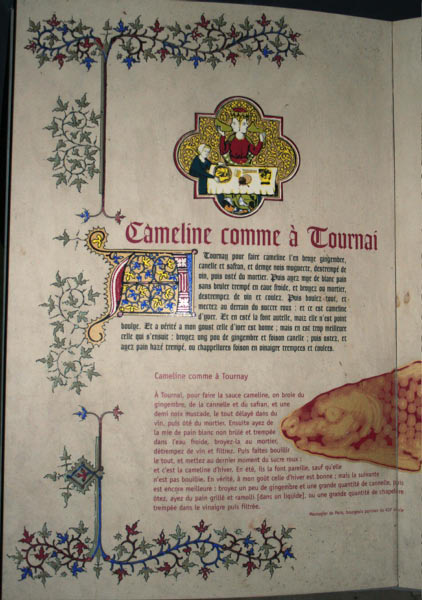 Cameline comme à Tournai
A Tournay pour faire cameline l'en broye gingembre,
canelle et saffran, et demye noix muguecte, destrempé de
vin, puis osté du mortier. Puis ayez mye de blanc pain
sans bruler trempé en eaue froide, et broyez au mortier,
destrempez de vin et coulez. Puis boulez tout, et
mectez au derrain du succre roux : et ce est cameline
d'yver. Et en esté la font autelle, mais elle n'est point
boulye. Et a vérité a mon goust celle d'iver est bonne ; mais en est trop meilleure
celle qui s'ensuit : broyez ung pou de gingembre et foison canelle ; puis ostez, et
ayez pain hazé trempé, ou chappelleures foison en vinaigre broyeez et coulees.
Cameline comme à Tournay
À Tournai, pour faire la sauce cameline, on broie du
gingembre, de la cannelle et du safran, et une
demi noix muscade, le tout délayé dans du
vin, puis ôté du mortier. Ensuite ayez de
la mie de pain blanc non brûlé et trempée
dans l'eau froide, broyez-la, au mortier,
détrempez de vin et filtrez. Puis faites bouillir
le tout, et mettez au dernier moment du sucre roux :
et c'est la cameline d'hiver. En été, ils la font pareille, sauf qu'elle
n'est pas bouillie. En vérité, à mon goût celle d'hiver est bonne ; mais la suivante
est encore meilleure : broyez un peu de gingembre et une grande quantité de cannelle, puis
ôtez, ayez du pain grillé et ramolli [dans un liquide], ou une grande quantité de chapelure,
trempée dans le vinaigre puis filtrée.
Mesnagier de Paris, bourgeois parisien du XIVe siècle